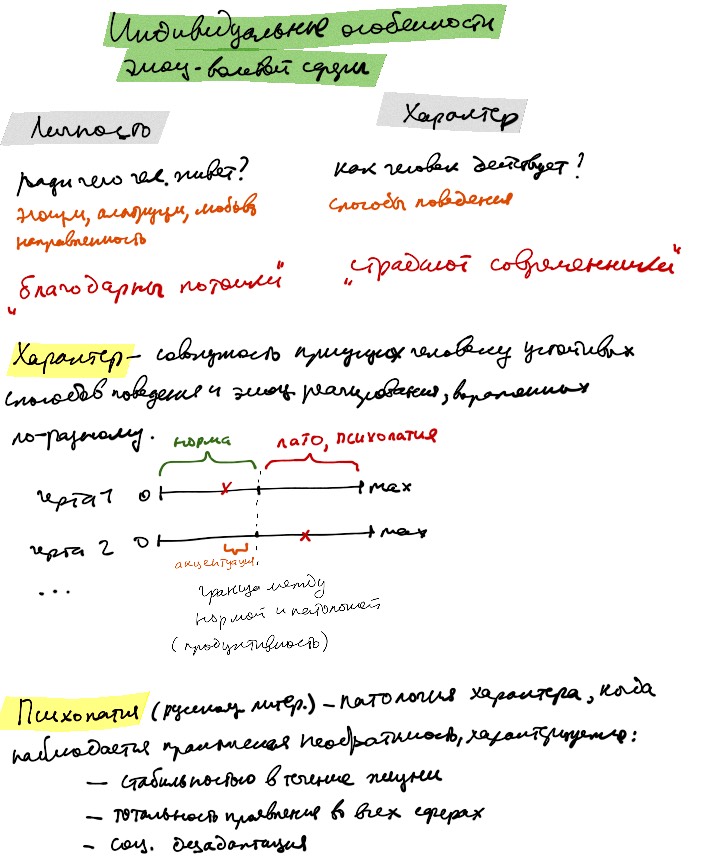 Индивидуальные особенности
эмоц-волевой сферы
Личность
Характер
ради чего чел. живет?
как человек действует?
эгоизм, альтруизм, любовь
направленность
способы поведения
"благодарны потомки"
"страдают современники"
Характер - совокупность присущих человеку устойчивых
способов поведения и эмоц. реагирования, выраженных
по-разному.
норма
пато, психопатия
черта 1 0 max
черта 2 0 max
акцентуация
...
граница между
нормой и патологией
(продуктивность)
Психопатия (русскояз. литер.) - патология характера, когда
наблюдается практическая необратимость, характеризуемая:
- стабильностью в течение жизни
- тотальность проявления во всех сферах
- соц. дезадаптация